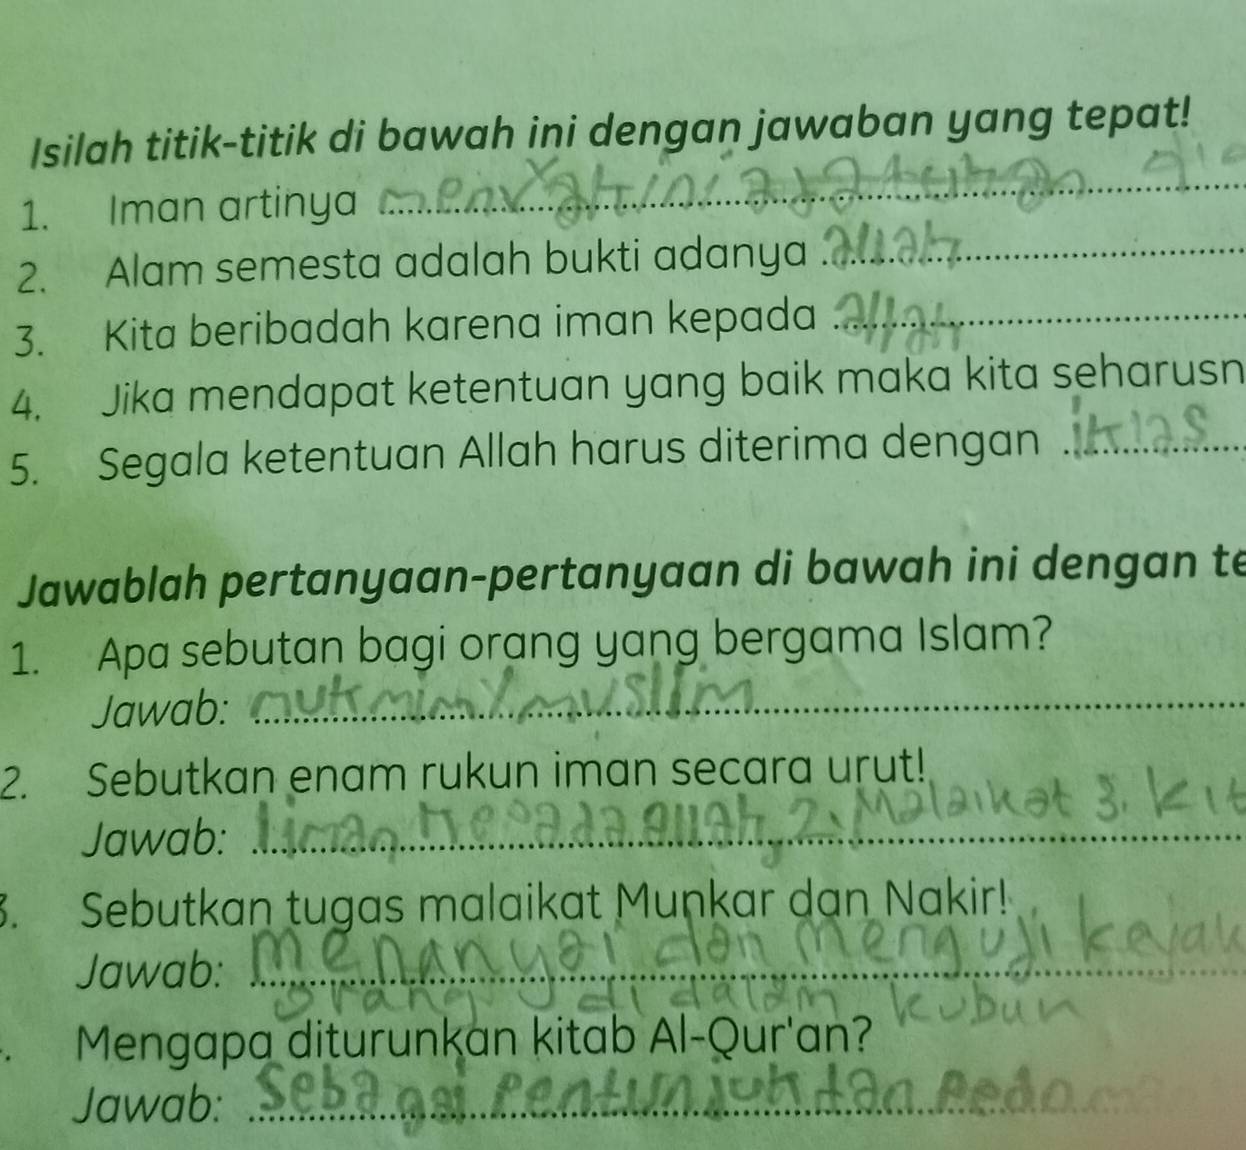 Isilah titik-titik di bawah ini dengan jawaban yang tepat!
1. Iman artinya
2. Alam semesta adalah bukti adanya allah
3. Kita beribadah karena iman kepada allah
4. Jika mendapat ketentuan yang baik maka kita seharusn
5. Segala ketentuan Allah harus diterima dengan iklas
Jawablah pertanyaan-pertanyaan di bawah ini dengan te
1. Apa sebutan bagi orang yang bergama Islam?
Jawab: mukmin/muslim
2. Sebutkan enam rukun iman secara urut!
Jawab: 1 iman kepada allah 2. Malaikat 3. kit
3. Sebutkan tugas malaikat Munkar dan Nakir!
Jawab: menanyai dan menguji kejak
orang di dalam kubun
. Mengapa diturunkan kitab Al-Qur'an?
Jawab: Sebagai Pentunjuh dan Pedoma